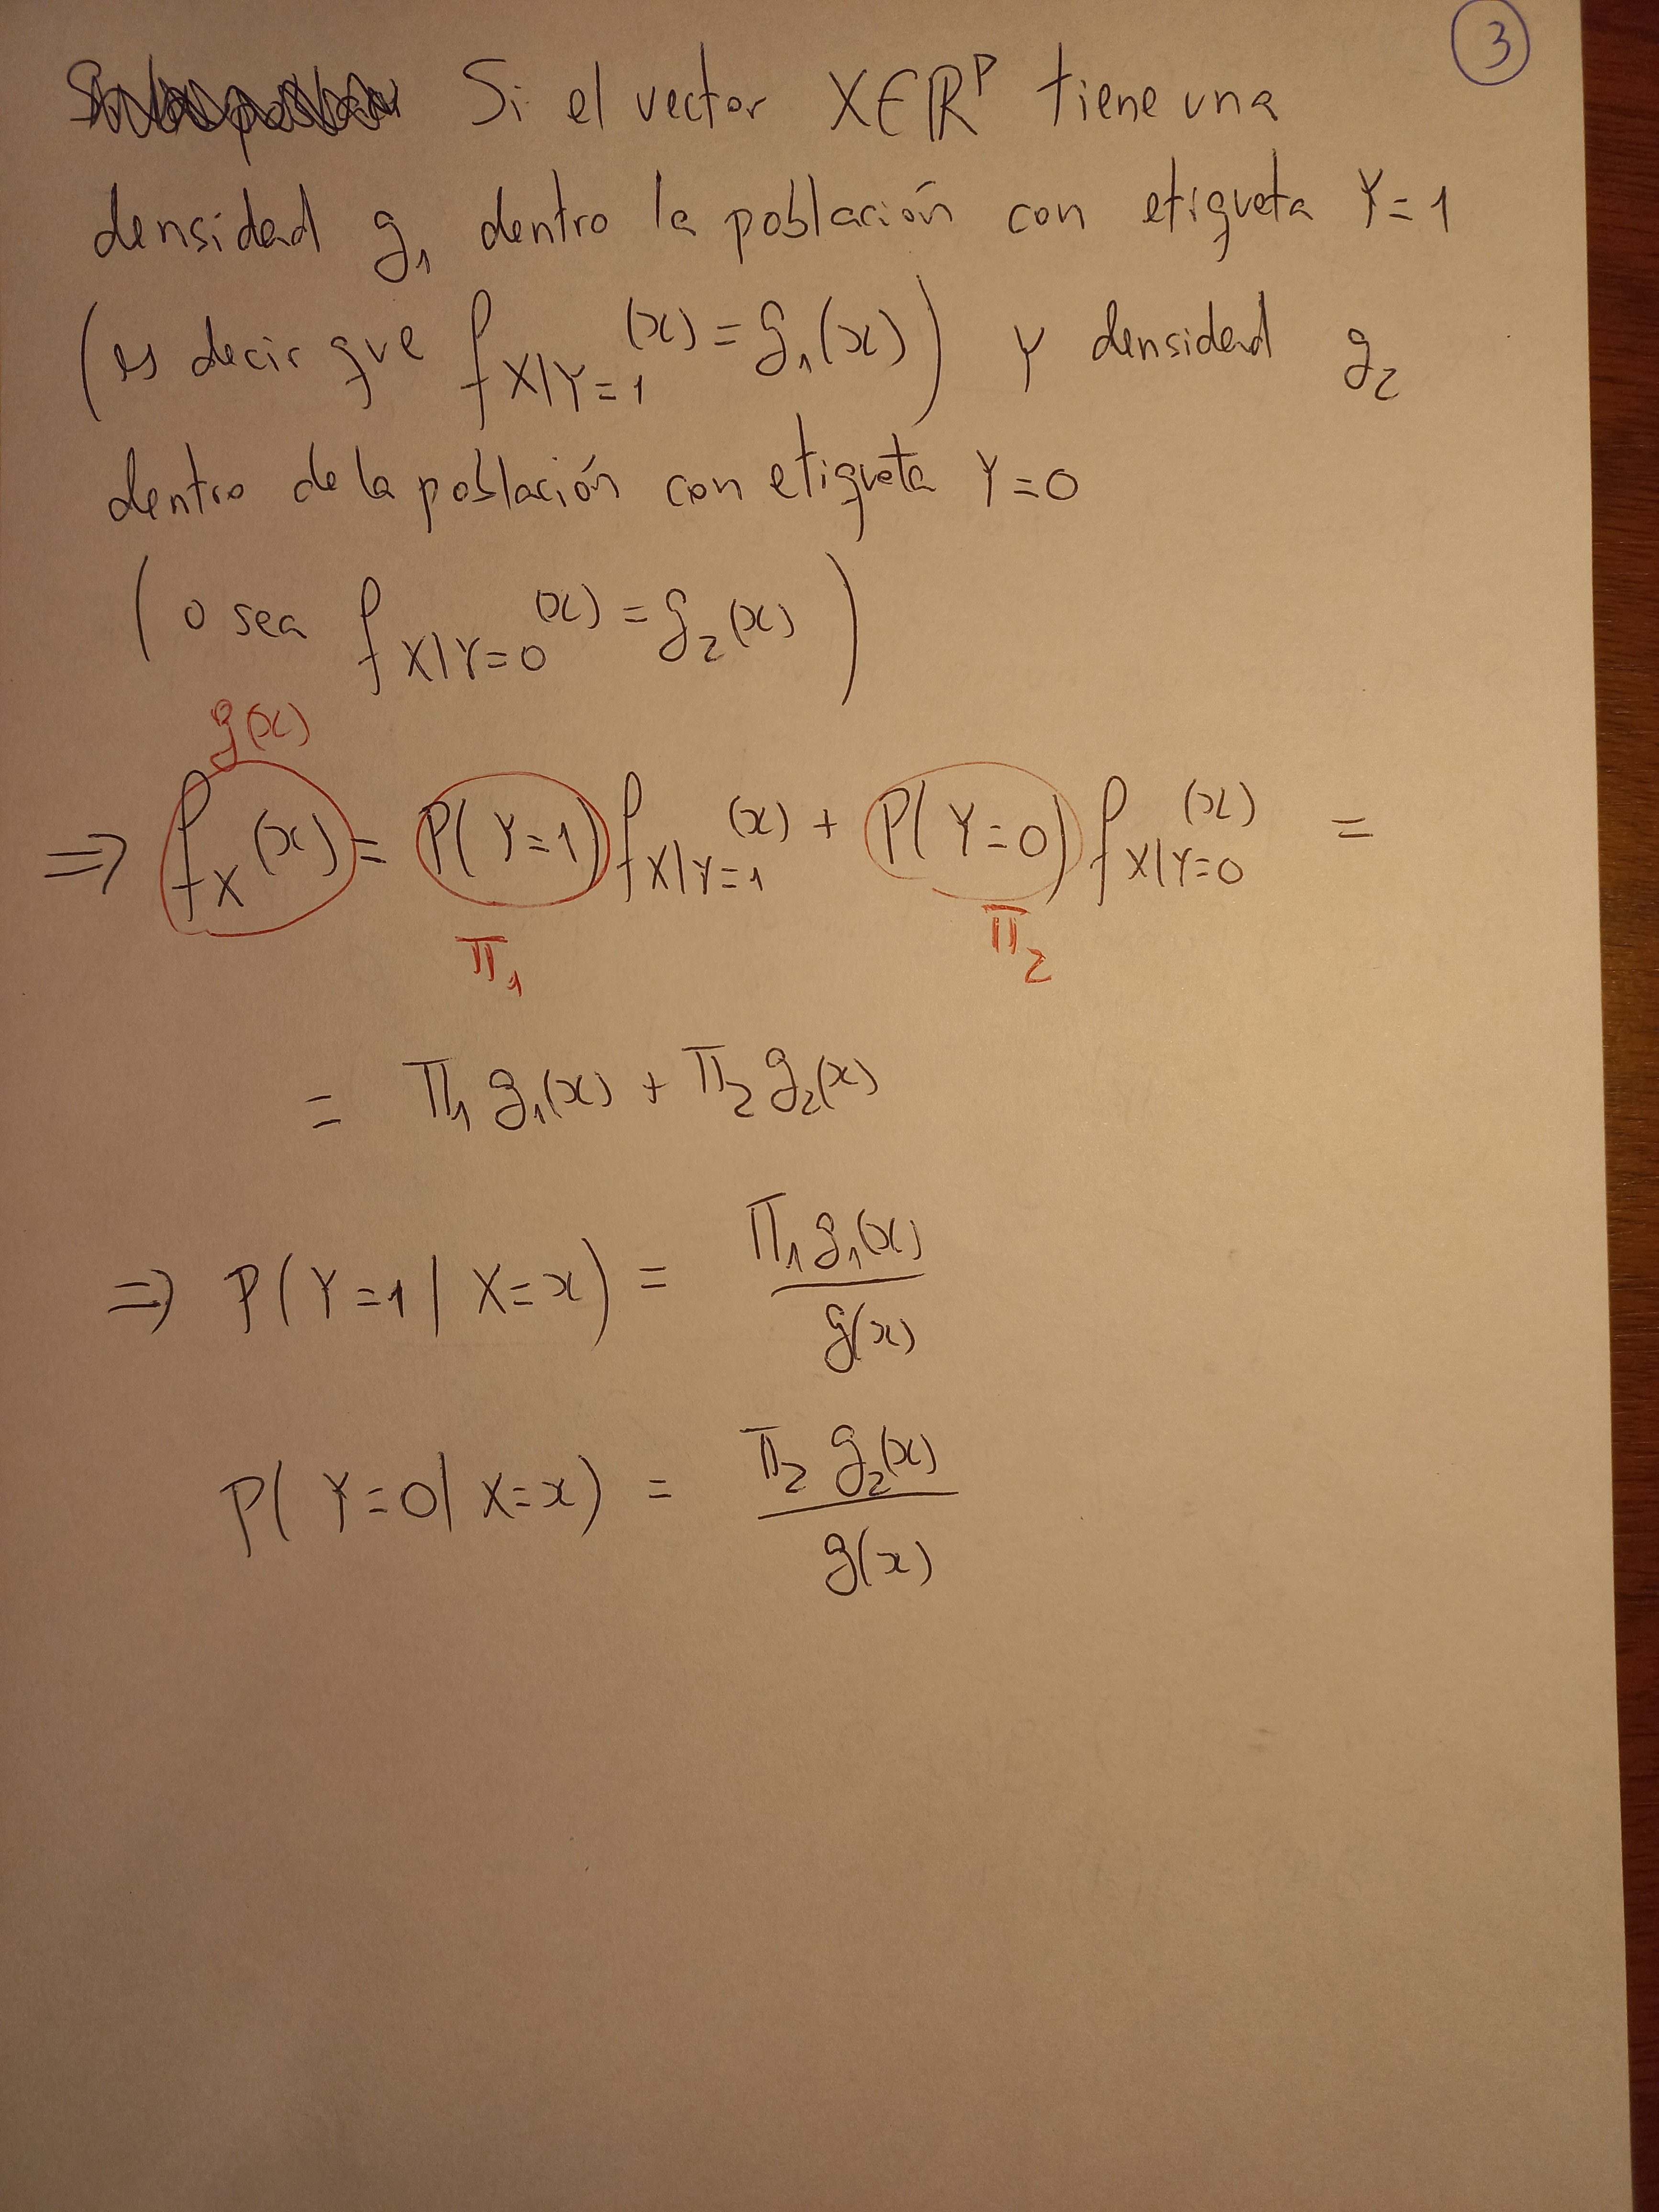 3
Si el vector X∈ℝᵖ tiene una
densidad g₁ dentro la población con etiqueta Y=1
(es decir que f_{X|Y=1}(x) = g₁(x)) y densidad g₂
dentro de la población con etiqueta Y=0
(o sea f_{X|Y=0}(x) = g₂(x))
g(x)
⇒ f_X(x) = P(Y=1) f_{X|Y=1}(x) + P(Y=0) f_{X|Y=0}(x) =
π₁ π₂
= π₁ g₁(x) + π₂ g₂(x)
⇒ P(Y=1 | X=x) = π₁ g₁(x) / g(x)
P(Y=0 | X=x) = π₂ g₂(x) / g(x)